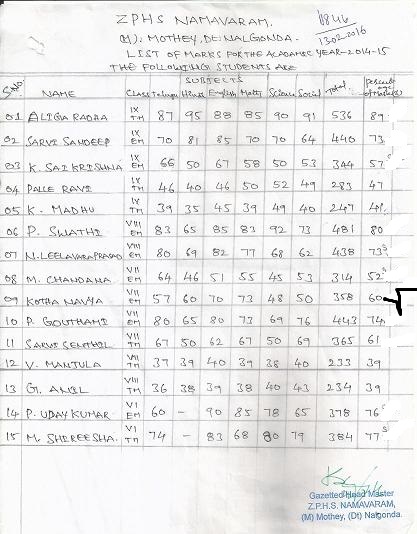 ZPHS NAMAVARAM.
(M): MOTHEY, Dt: NALGONDA.
13-02-2016
LIST OF MARKS FOR THE ACADAMIC YEAR-2014-15
THE FOLLOWING STUDENTS ARE
SUBJECTS
S.No. NAME Class Telugu Hindi English Maths Science Social Total percentage of Marks
01 ALIGIA RADHA IX TM 87 95 88 85 90 91 536 89
02 SARVI SANDEEP IX EM 70 81 85 70 70 64 440 73
03 K. SAI KRISHNA IX EM 66 50 67 58 50 53 344 57
04 PALLE RAVI IX TM 46 40 46 50 52 49 283 47
05 K. MADHU IX TM 39 35 45 39 49 40 247 41
06 P. SWATHI VIII EM 83 65 85 83 92 73 481 80
07 N. LEELAVARAPRASAD VIII EM 80 69 82 77 68 62 438 73
08 M. CHANDANA VIII EM 64 46 51 55 45 53 314 52
09 KOTHA NAVYA VIII EM 57 60 70 73 48 50 358 60
10 P. GOUTHAMI VIII EM 80 65 80 73 69 76 443 74
11 SARVI SENTHIL VIII TM 67 50 62 67 50 69 365 61
12 V. MANJULA VIII TM 37 39 40 39 38 40 233 39
13 G. ANIL VIII TM 36 38 39 38 40 43 234 39
14 P. UDAY KUMAR VI EM 60 - 90 85 78 65 378 76
15 M. SHIREESHA VI TM 74 - 83 68 80 79 384 77
Gazetted Head Master
Z.P.H.S. NAMAVARAM,
(M) Mothey, (Dt) Nalgonda.